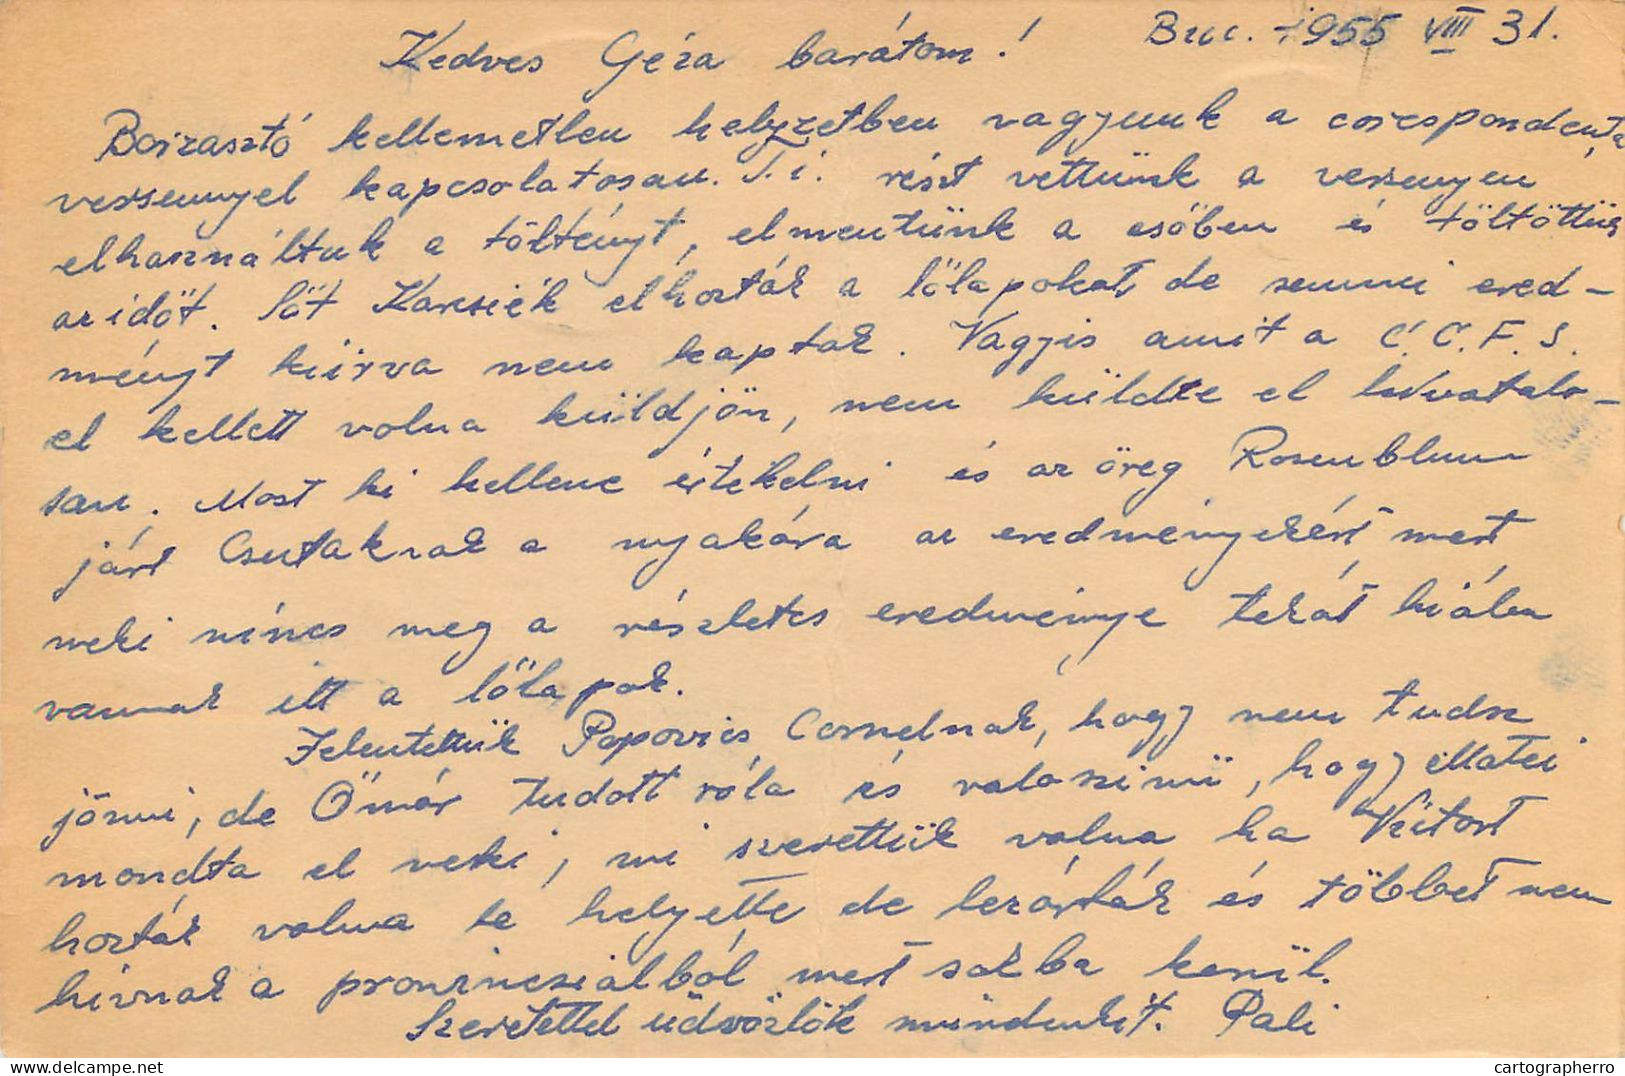 Buc. 1955 VIII 31.
Kedves Géza barátom!
Borzasztó kellemetlen helyzetben vagyunk a corespondenta
versennyel kapcsolatosan. T.i. részt vettünk a versenyen
elhasználtuk a töltényt, elmentünk a esőben és töltöttük
az időt. Sőt Karsiék elhozták a lőlapokat de semmi ered-
ményt kiirva nem kaptak. Vagyis amit a C.C.F.S.
el kellett volna küldjön, nem küldte el hivatalo-
san. Most ki kellene értékelni és az öreg Rosenblum
járt Csutaknak a nyakára az eredményekért mert
neki nincs meg a részletes eredménye tehát hiába
vannak itt a lőlapok.
Jelentettük Popovics Cornelnak, hogy nem tudsz
jönni, de Ő már tudott róla és valoszinü, hogy Matei
mondta el neki, mi szerettük volna ha Viktort
hozták volna be helyette de lezárták és többet nem
hívnak a provinciából mert sokba kerül.
Szeretettel üdvözlök mindenkit. Pali
cartographerro